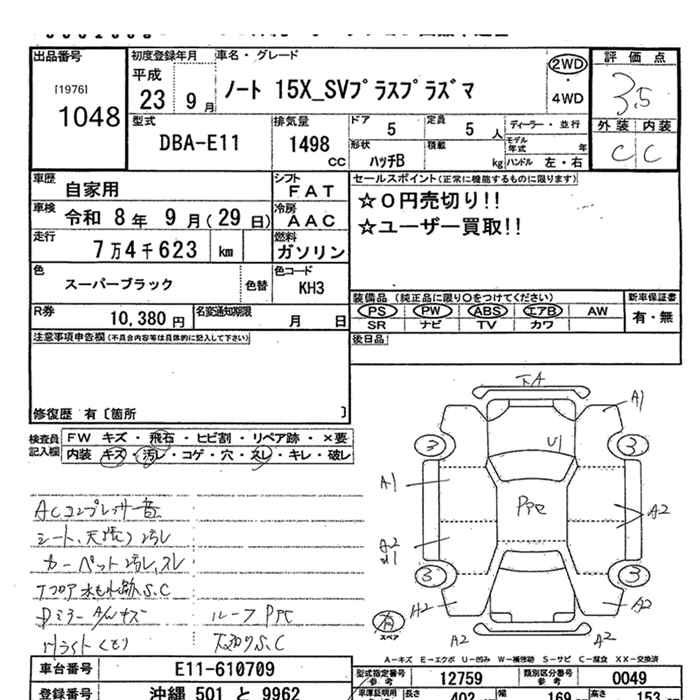 出品番号
[1976]
1048
初度登録年月
平成
23 9月
車名・グレード
ノート 15X_SVプラスプラズマ
2WD
・
4WD
評価点
3.5
外装 内装
C C
型式
DBA-E11
排気量
1498
CC
ドア
5
定員
5 人
ディーラー・並行
形状
ハッチB
積載
kg
モデル年式 年
ハンドル 左・右
車歴
自家用
シフト
FAT
車検
令和 8年 9月(29日)
冷房
AAC
走行
7万4千623 km
燃料
ガソリン
色
スーパーブラック
色替
色コード
KH3
R券
10,380 円
名変通知期限
月 日
セールスポイント(正常に機能するものに限ります)
☆0円売切り!!
☆ユーザー買取!!
装備品(純正品に限り〇をつけてください)
PS PW ABS エアB AW
SR ナビ TV カワ
新車保証書
有・無
後日品
注意事項申告欄(不具合内容等は具体的に記入して下さい)
修復歴 有〔箇所 〕
検査員
記入欄
FW キズ・飛石・ヒビ割・リペア跡・×要
内装 キズ・汚レ・コゲ・穴・スレ・キレ・破レ
ACコンプレッサー音
シート、天張り汚レ
カーペット汚レ、スレ
Dミラー
ルーフPPC
S.C
下A
A1
U1
3
3
A1
PPC
A2
A2
3
3
A2
A2
スペア
A2
A2
A-キズ E-エクボ U-凹み W-補修跡 S-サビ C-腐食 XX-交換済
車台番号
E11-610709
型式指定番号
/参考
12759
類別区分番号
参考
0049
登録番号
沖縄 501 と 9962
車庫証明用
長さ
402 cm
幅
169 cm
高さ
153